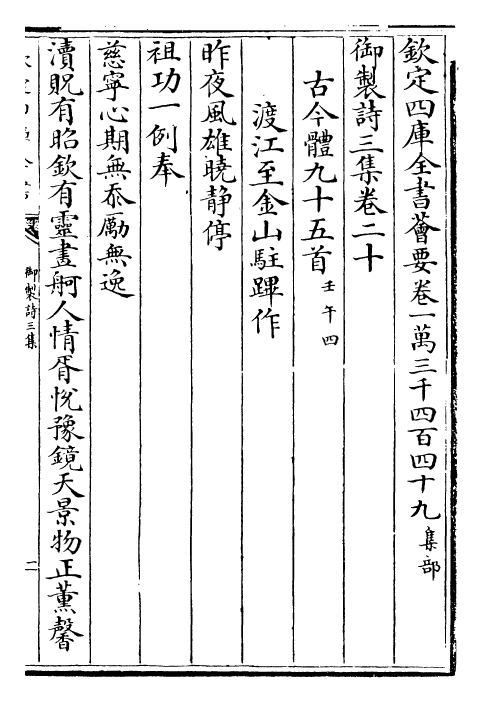 欽定四庫全書薈要卷一萬三千四百四十九 集部
御製詩三集卷二十
古今體九十五首 壬午四
渡江至金山駐蹕作
昨夜風雄曉静停
祖功一例奉
慈寧心期無忝勵無逸
瀆貺有昭欽有靈晝舸人情胥恱豫鏡天景物正薰馨
御製詩三集
二